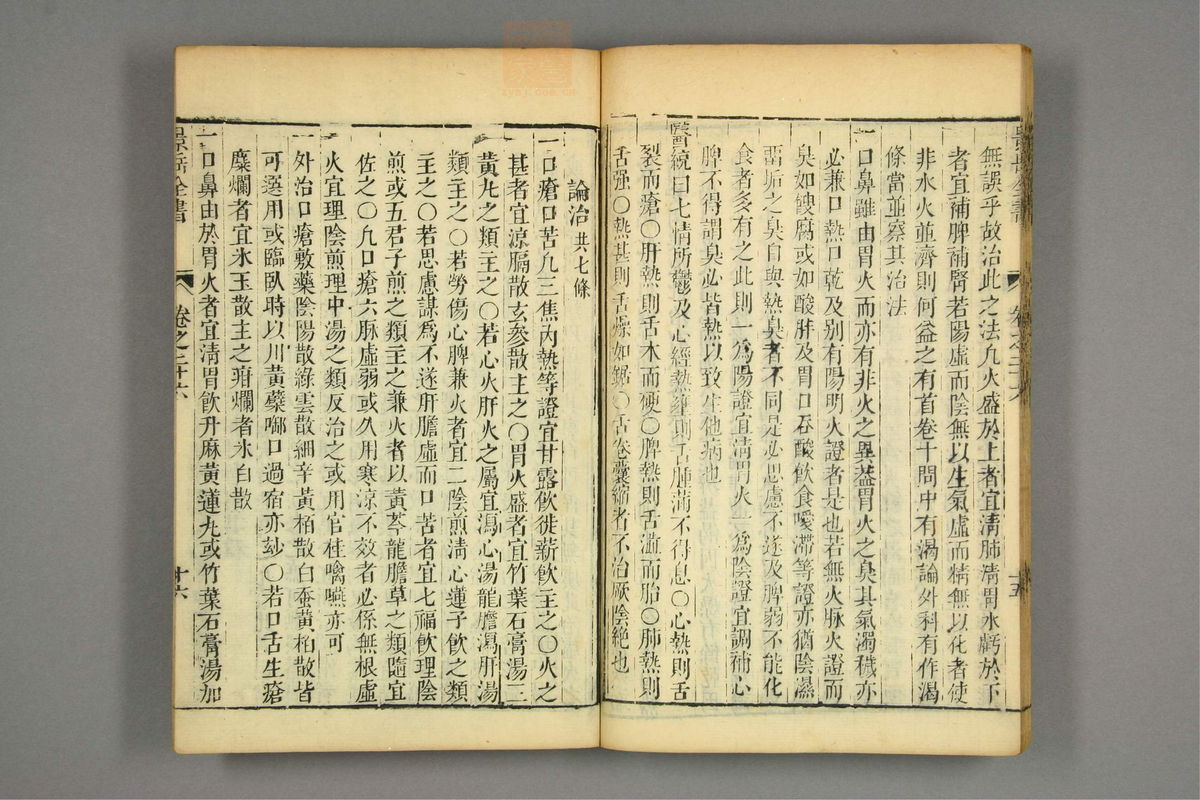 無誤乎故治此之法凡火盛於上者宜清肺清胃水虧於下
者宜補脾補腎若陽虛而陰無以生氣虛而精無以化者使
非水火並濟則何益之有首卷十問中有渴論外科有作渴
條當並察其治法
一口鼻雖由胃火而亦有非火之異蓋胃火之臭其氣濁穢亦
必兼口熱口乾及別有陽明火證者是也若無火脉火證而
臭如餿腐或如酸胖及胃口吞酸飲食噯滯等證亦猶陰濕
畱垢之臭自與熱臭者不同是必思慮不遂及脾弱不能化
食者多有之此則一爲陽證宜清胃火一爲陰證宜調補心
脾不得謂臭必皆熱以致生他病也
醫統曰七情所鬱及心經熱壅則舌腫滿不得息○心熱則舌
裂而瘡○肝熱則舌木而硬○脾熱則舌澁而胎○肺熱則
舌强○熱甚則舌燥如鋸○舌卷囊縮者不治厥陰絶也
景岳全書 卷之二十六 十五
論治 共七條
一口瘡口苦凡三焦內熱等證宜甘露飲徙薪飲主之○火之
甚者宜涼膈散玄參散主之○胃火盛者宜竹葉石膏湯三
黃丸之類主之○若心火肝火之屬宜瀉心湯龍膽瀉肝湯
類主之○若勞傷心脾兼火者宜二陰煎清心蓮子飲之類
主之○若思慮謀爲不遂肝膽虛而口苦者宜七福飲理陰
煎或五君子煎之類主之兼火者以黃芩龍膽草之類隨宜
佐之○凡口瘡六脉虛弱或久用寒涼不效者必係無根虛
火宜理陰煎理中湯之類反治之或用官桂噙嚥亦可
外治口瘡敷藥陰陽散綠雲散細辛黃柏散白蚕黃柏散皆
可選用或臨臥時以川黃蘗啣口過宿亦玅○若口舌生瘡
糜爛者宜氷玉散主之疳爛者氷白散
一口鼻由於胃火者宜清胃飲升麻黃蓮丸或竹葉石膏湯加
景岳全書 卷之二十六 十六